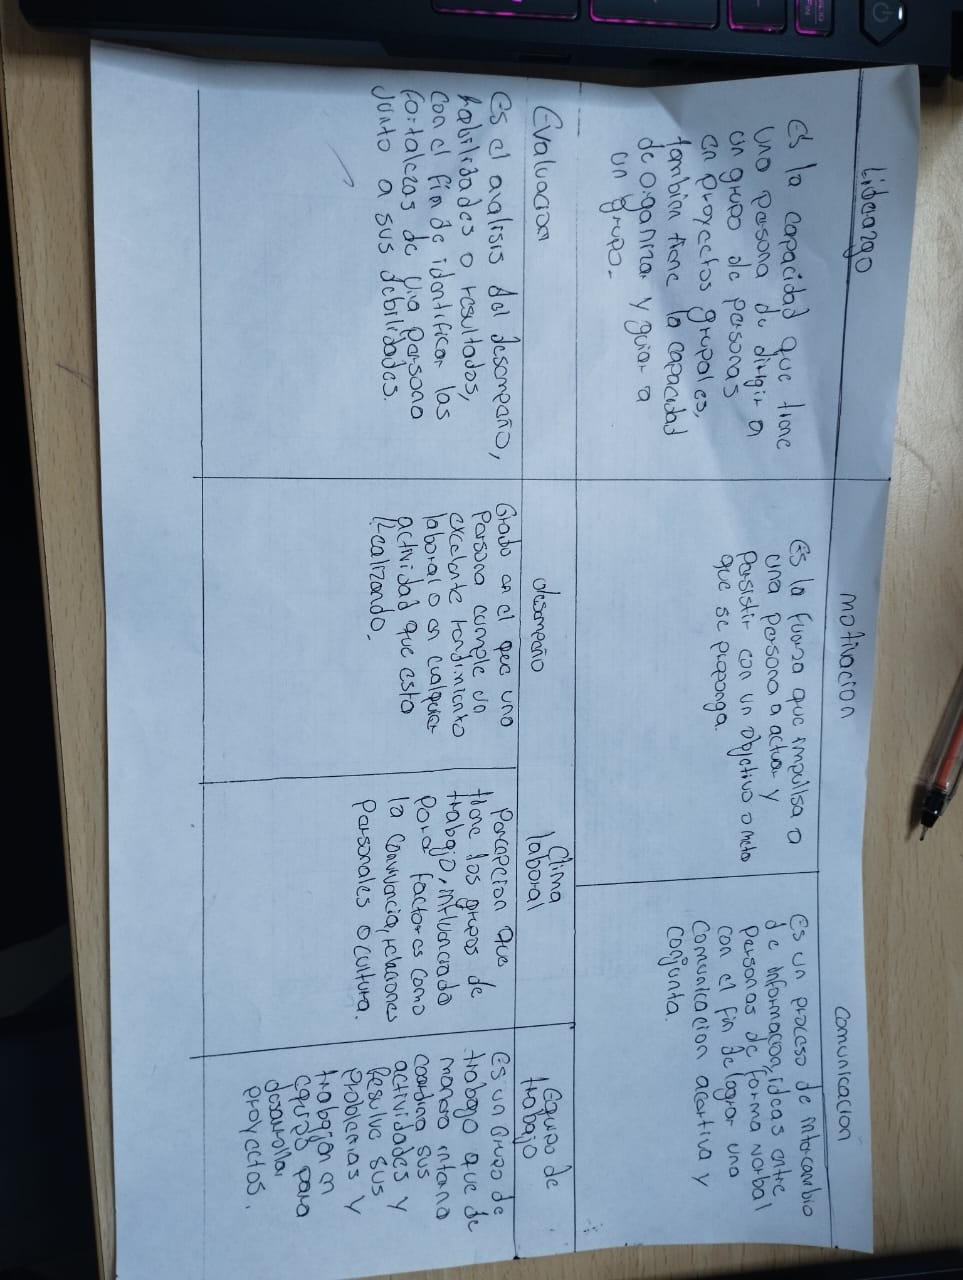 Liderazgo
Es la capacidad que tiene
una persona de dirigir a
un grupo de personas
en proyectos grupales,
tambien tiene la capacidad
de organizar y guiar a
un grupo.
motivacion
Es la fuersa que impulsa a
una persona a actuar y
persistir con un objetivo o meta
que se proponga.
Comunicacion
Es un proceso de intercambio
de informacion, ideas entre
personas de forma verbal
con el fin de lograr una
comunicacion acertiva y
conjunta.
Evaluacion
Es el analisis del desempeño,
habilidades o resultados,
con el fin de identificar las
fortalezas de una persona
junto a sus debilidades.
desempeño
Grado en el que una
persona cumple un
excelente rendimiento
laboral o en cualquier
actividad que esta
Realizando.
Clima
laboral
Percepcion que
tiene los grupos de
trabajo, influenciada
por factores como
la convivencia, relaciones
personales o cultura.
Equipo de
trabajo
Es un Grupo de
trabajo que de
manera interna
coordina sus
actividades y
Resulve sus
problemas y
trabajan en
equipo para
desarrollar
proyectos.